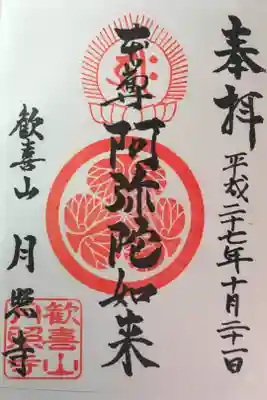 奉拝
平成二十七年十月二十一日
本尊阿弥陀如来
歓喜山 月照寺
歓喜山
月照寺